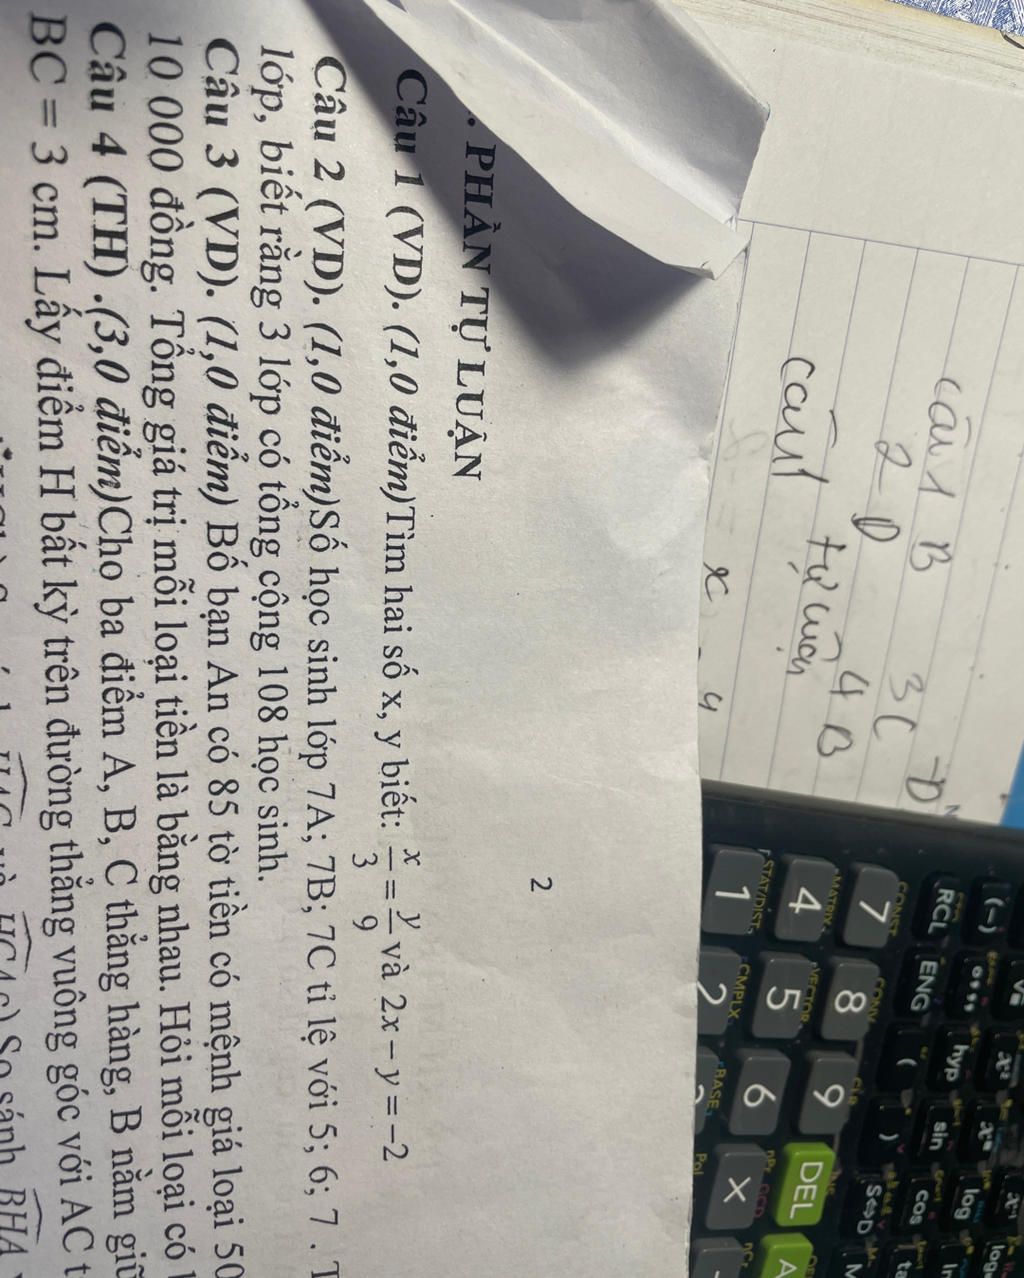 . PHẦN TỰ LUẬN
Câu 1 (VD). (1,0 điểm)Tìm hai số x, y biết: x/3 = y/9 và 2x – y = –2
Câu 2 (VD). (1,0 điểm)Số học sinh lớp 7A; 7B; 7C tỉ lệ với 5; 6; 7 .
lớp, biết rằng 3 lớp có tổng cộng 108 học sinh.
Câu 3 (VD). (1,0 điểm) Bố bạn An có 85 tờ tiền có mệnh giá loại 50
10 000 đồng. Tổng giá trị mỗi loại tiền là bằng nhau. Hỏi mỗi loại có
Câu 4 (TH) .(3,0 điểm)Cho ba điểm A, B, C thẳng hàng, B nằm giữ
BC = 3 cm. Lấy điểm H bất kỳ trên đường thẳng vuông góc với AC t
So sánh BHA
2
câu1 B 3C
2 D 4B
câu1 tự luận
x y
RCL ENG ( ) S⇔D
(–) hyp sin cos
log
7 8 9 DEL
4 5 6 ×
1 2
CONST CONV CLR
MATRIX VECTOR
STAT/DIST CMPLX BASE Pol